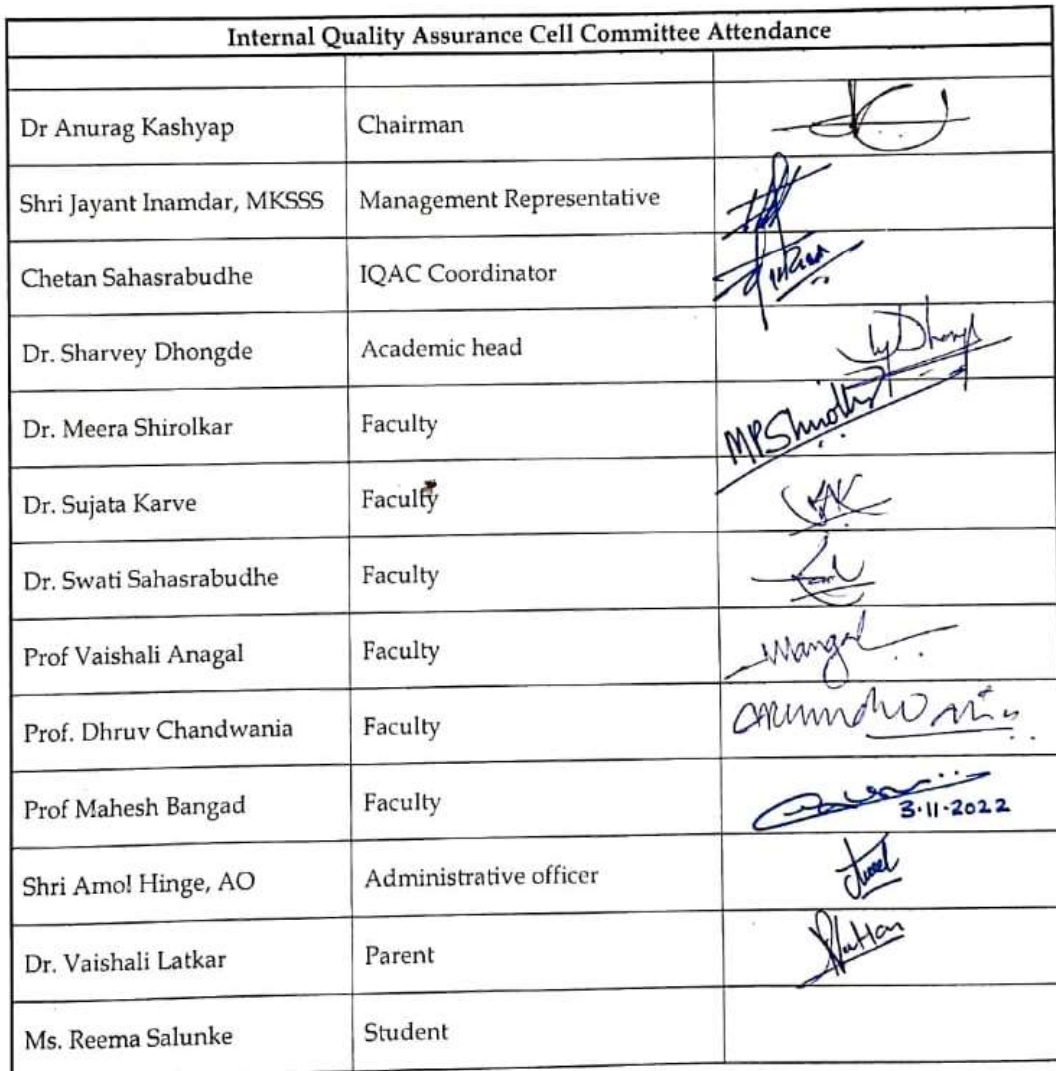 Internal Quality Assurance Cell Committee Attendance
Dr Anurag Kashyap Chairman
Shri Jayant Inamdar, MKSSS Management Representative
Chetan Sahasrabudhe IQAC Coordinator
Dr. Sharvey Dhongde Academic head
Dr. Meera Shirolkar Faculty
Dr. Sujata Karve Faculty
Dr. Swati Sahasrabudhe Faculty
Prof Vaishali Anagal Faculty
Prof. Dhruv Chandwania Faculty
Prof Mahesh Bangad Faculty 3-11-2022
Shri Amol Hinge, AO Administrative officer
Dr. Vaishali Latkar Parent
Ms. Reema Salunke Student